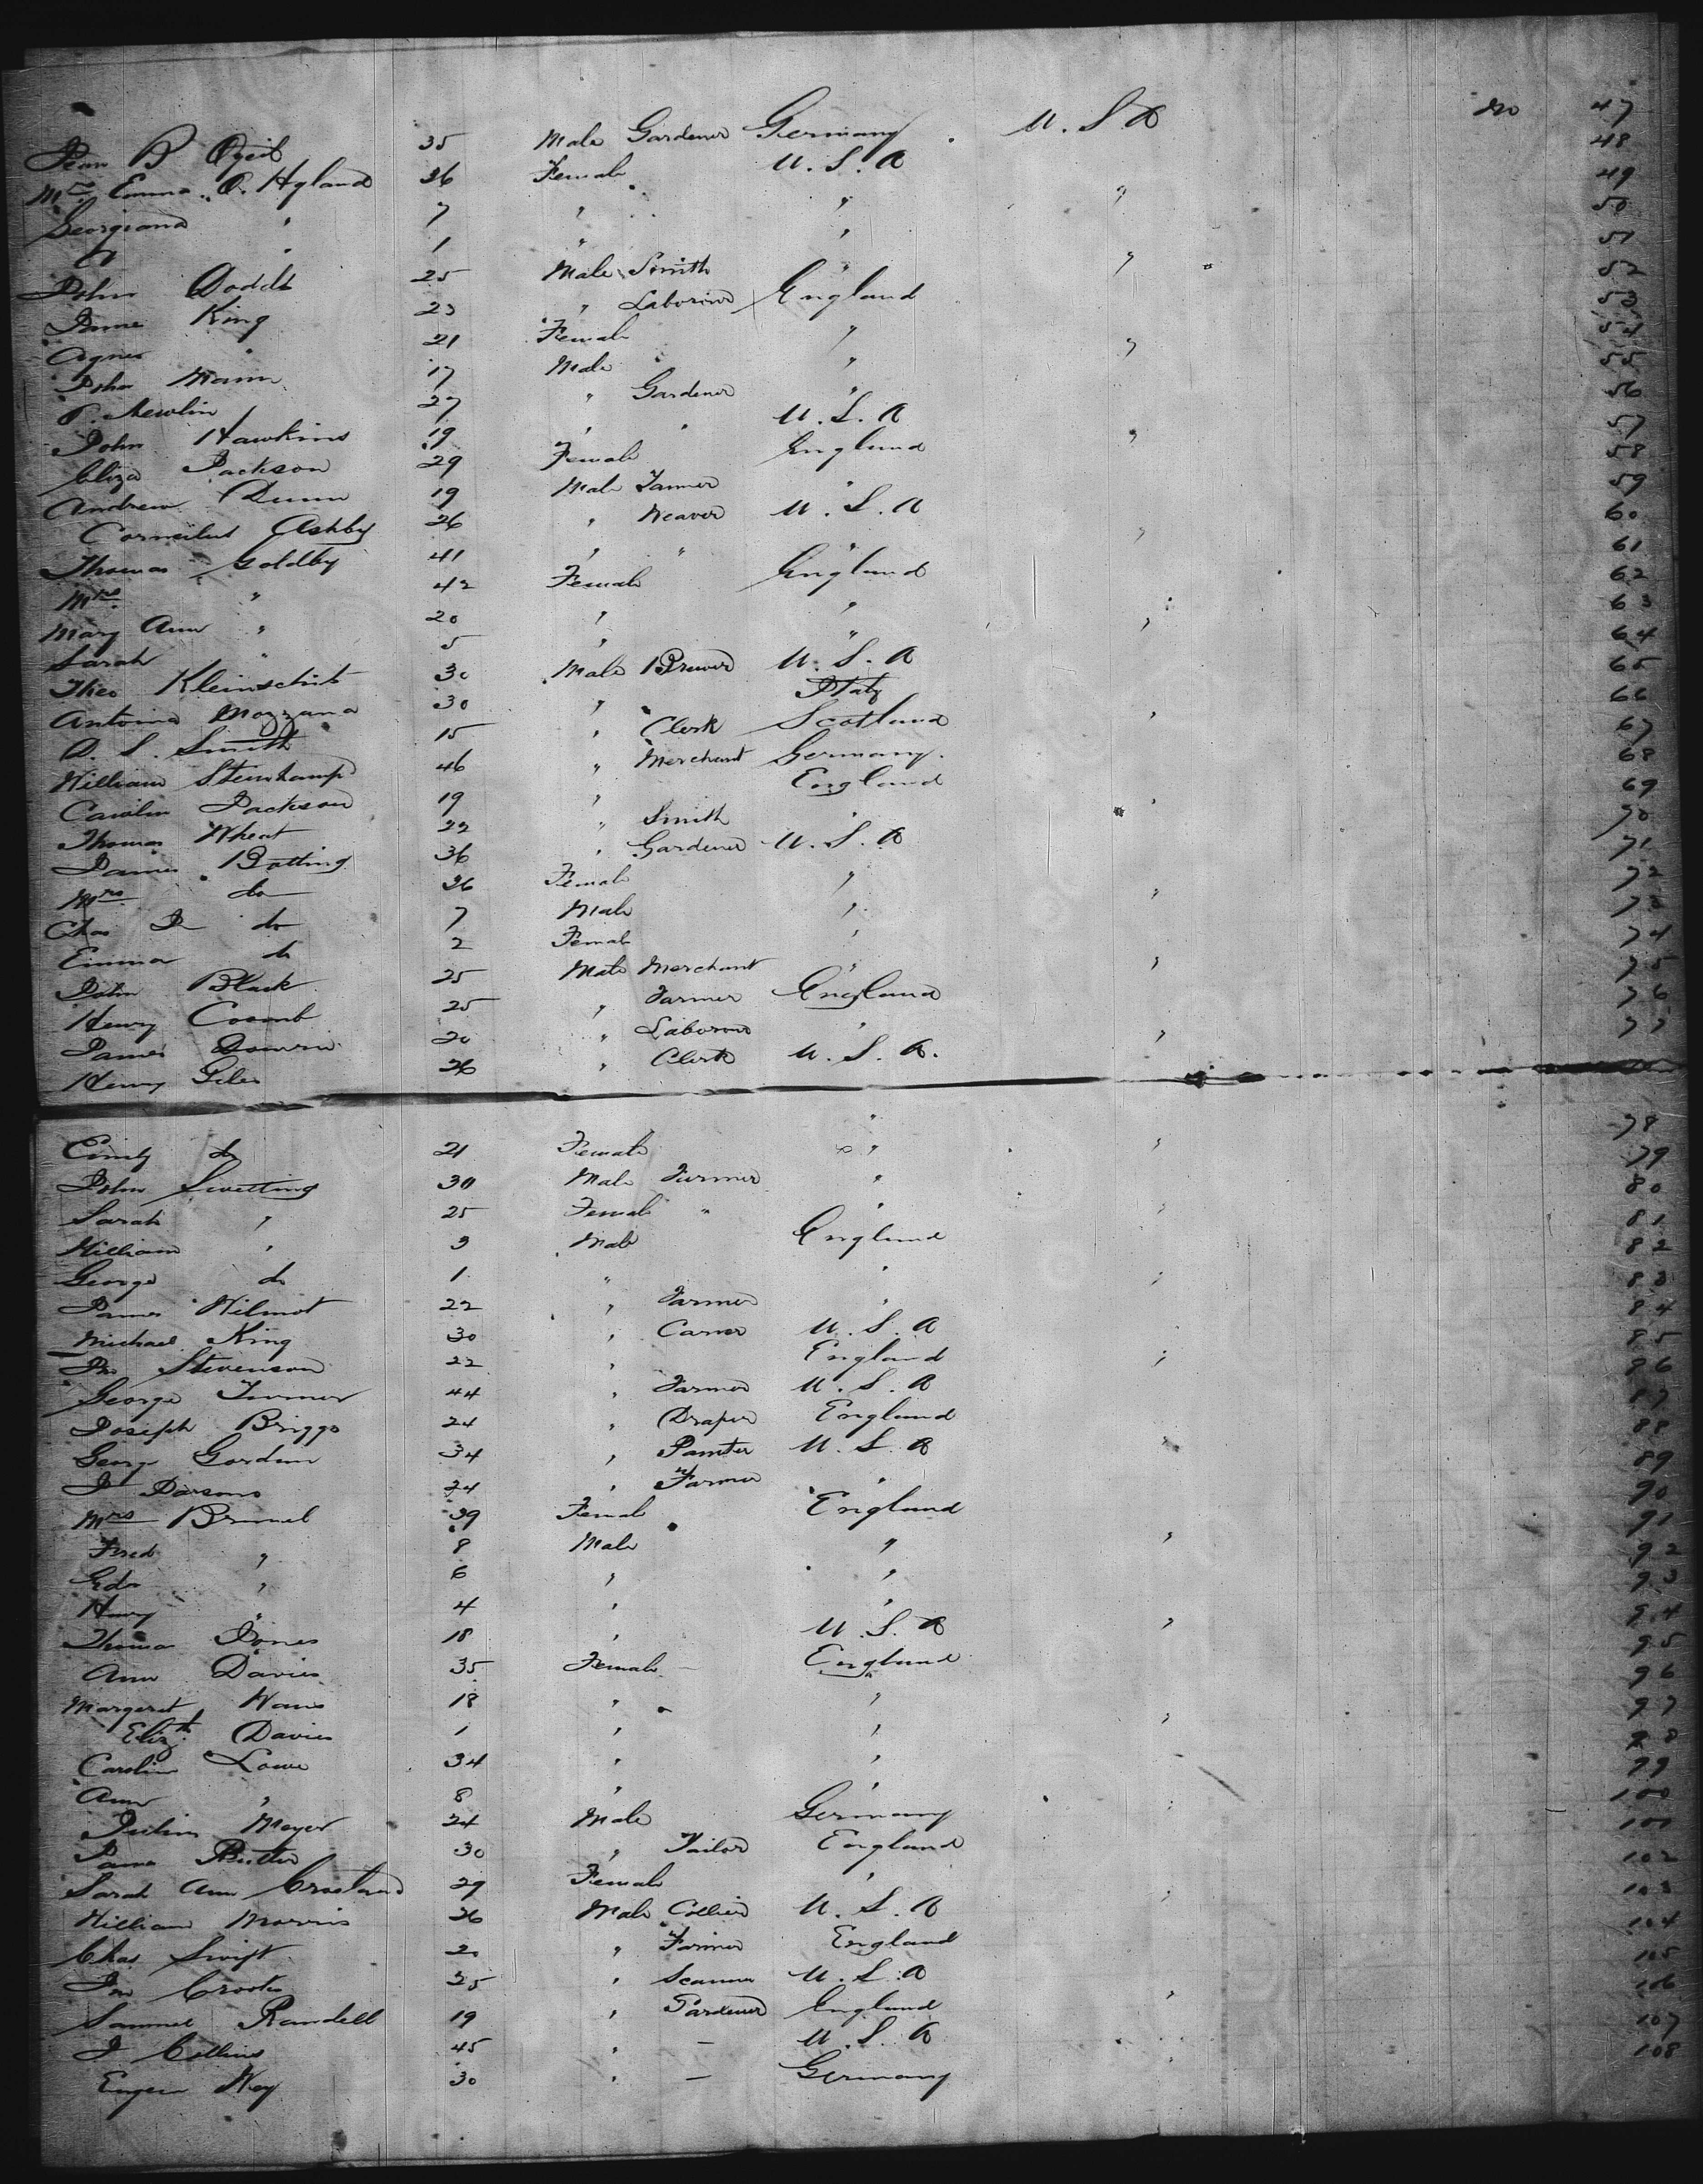 Jean B Ogeil 35 Male Gardener Germany U.S.A no 47
Mrs Emma O. Hyland 36 Female U.S.A 48
Georgiana " 7 " " " 49
1 " " 50
John Dodds 25 Male Smith " " 51
King 23 " Laborer England 52
Agnes " 21 Female " 53
John Mann 17 Male " " 54
P. Newlin 27 " Gardener " 55
John Hawkins 19 " " U.S.A 56
Eliza Jackson 29 Female England " 57
Andrew Dunn 19 Male Farmer " 58
Corneilus Ashby 26 " Weaver U.S.A 59
Thomas Goldby 41 " " " " 60
Mrs " 42 Female England 61
Mary Ann " 20 " " 62
Sarah " 5 " " " 63
Theo 30 Male Brewer U.S.A 64
Mozzana 30 " Italy 65
Smith 15 " Clerk Scotland " 66
William 46 " Merchant Germany 67
Jackson 19 " England 68
Thomas Wheat 22 " Smith " " 69
James Botting 36 " Gardener U.S.A 70
Mrs do 36 Female " 71
Chas do 7 Male " " 72
Emma do 2 Female " 73
John Black 25 Male Merchant " " 74
Henry Coomb 25 " Farmer England 75
James 20 " Laborer " " 76
Henry Giles 26 " Clerk U.S.A. 77
Emily do 21 Female " " 78
John Swetting 30 Male Farmer " 79
Sarah " 25 Female " " " 80
William " 3 Male England 81
George do 1 " " " 82
James Wilmot 22 " Farmer " 83
Michael King 30 " U.S.A 84
Stevenson 22 " England " 85
George Turner 44 " Farmer U.S.A 86
Joseph Briggs 24 " Draper England 87
George Gordon 34 " Painter U.S.A " 88
J Parsons 24 " Farmer " 89
Mrs 39 Female England 90
Fred " 8 Male " " 91
" 6 " " 92
Henry " 4 " " 93
Thomas Jones 18 " U.S.A " 94
Ann Davies 35 Female England 95
Margaret 18 " " 96
Elizth Davies 1 " " " 97
Caroline Lowe 34 " " 98
Ann " 8 " " 99
Meyer 24 Male Germany 100
30 " Tailor England 101
Sarah Ann 29 Female " 102
William Morris 26 Male Collier U.S.A 103
Chas Swift 20 " Farmer England 104
25 " U.S.A 105
Samuel Randell 19 " Gardener England " 106
J Collins 45 " — U.S.A 107
30 " — Germany 108